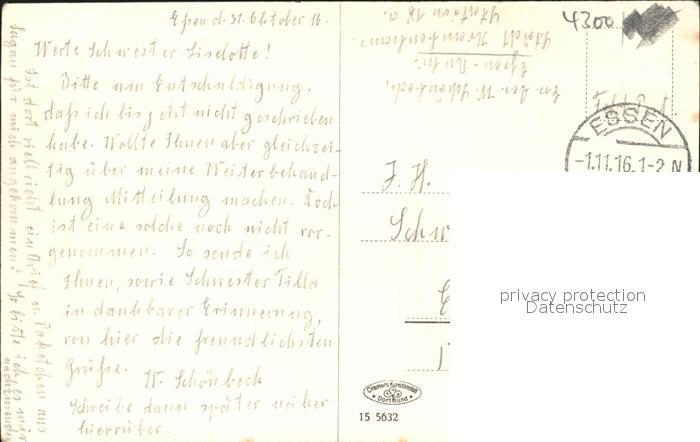 Essen d. 31. Oktober 16.
Werte Schwester Liselotte!
Bitte um Entschuldigung,
daß ich bis jetzt nicht geschrieben
habe. Wollte Ihnen aber gleichzei-
tig über meine Weiterbehand-
lung Mitteilung machen. Doch
ist eine solche noch nicht vor-
genommen. So sende ich
Ihnen, sowie Schwester Tilla
in dankbarer Erinnerung,
von hier die freundlichsten
Grüße.
W. Schönbeck
Schreibe dann später näher
hierrüber.
Ist dort vielleicht ein Brief u. Paketchen aus
für mich angekommen? So bitte ich, es mir
nachzusenden
W. Schönbeck,
Essen-Ruhr.
Städt. Krankenhaus
Station 18 a.
4300
Feldpost
ESSEN
-1.11.16.1-2 N
J. H.
Schw
E
privacy protection
Datenschutz
Cramers Kunstanstalt
Dortmund
15 5632